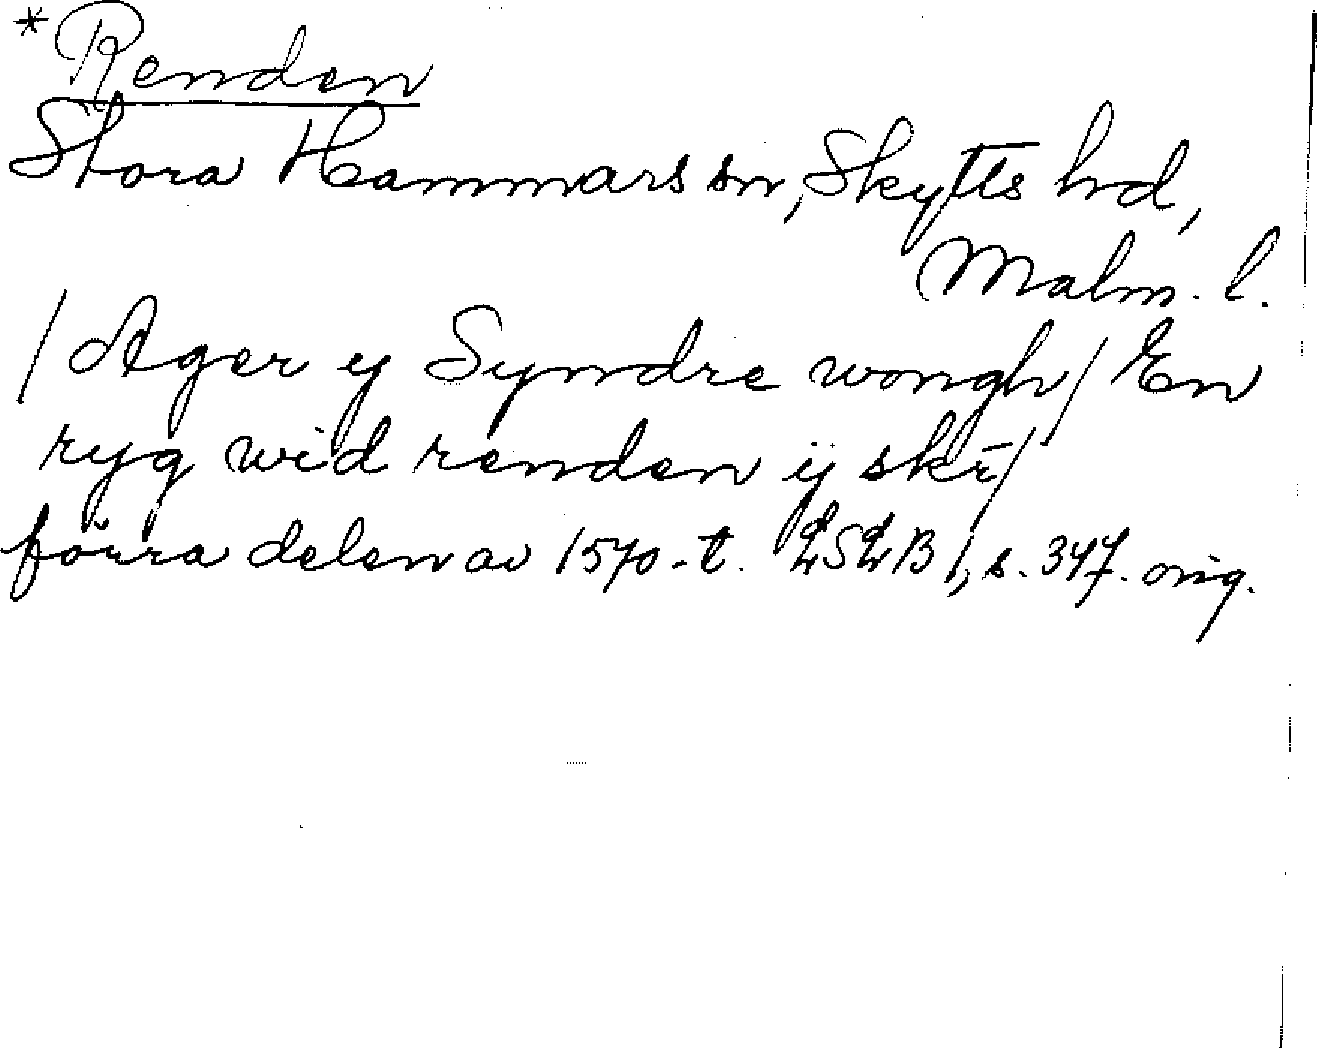 *Renden
Stora Hammars sn, Skytts hd,
Malm. l.
/Ager ij Syndre wongh/ En
ryg wid renden ij skr̄/
förra delen av 1570-t. LSLB 1, s. 347. orig.